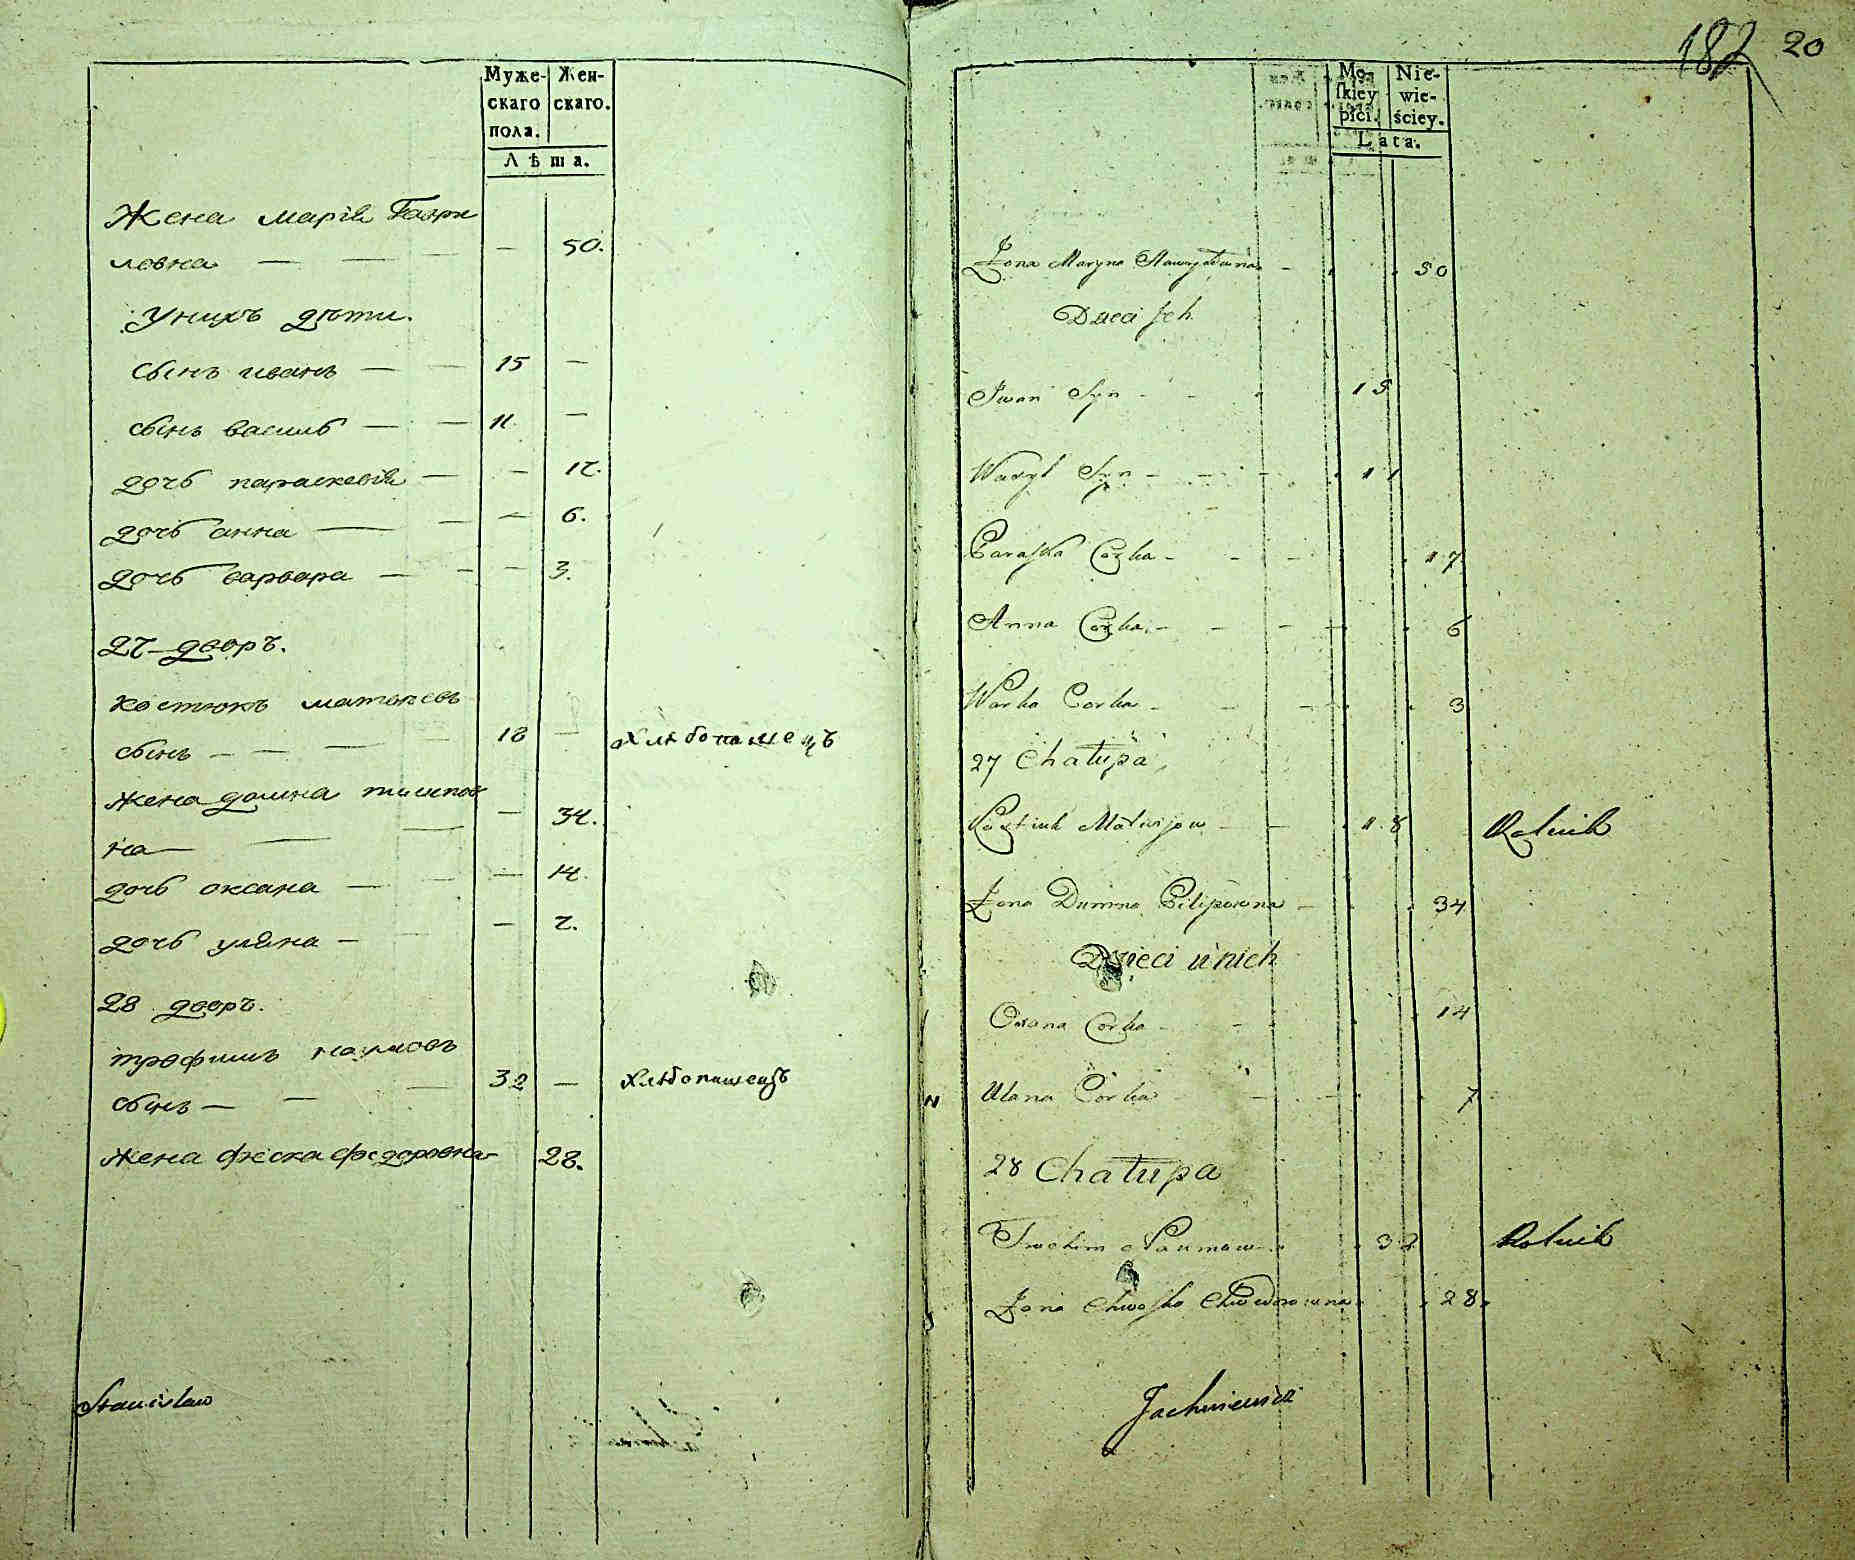 Муже-
скаго
пола.
Жен-
скаго.
Лѣта.
Жена марія Гаври
ловна — — — — 50.
Унихъ дѣти.
сынъ иванъ — — 15 —
сынъ василь — — 11 —
дочь параскевія — — 17.
дочь анна — — — 6.
дочь варвара — — — 3.
27 дворъ.
костюкъ матвѣевъ
сынъ — — — — 18 — хлѣбопашецъ
жена домна
на — — — 34.
дочь оксана — — — 14.
дочь уляна — — — 7.
28 дворъ.
трофимъ наумовъ
сынъ — — — 32 — хлѣбопашецъ
жена феска федоровна — 28.
Stanisław
182 20
Mę-
skiey
płci.
Nie-
wie-
ściey.
Lata.
Żona Maryna - 50
Dzieci Jch
Iwan Syn - - 15
Wasyl Syn - - - 11
Paraska Corka - - - 17
Anna Corka - - - - 6
Warka Corka - - - 3
27 Chałupa
Kostiuk Matwijow - - 18 Rolnik
Żona Dumna Pilipowna - 34
Dzieci u nich
Oxana Corka - - 14
Ulana Corka - - - 7
28 Chałupa
Trochim Naumow - 32 Rolnik
Żona Chweska Chwedorowna 28.
Jachniewicz